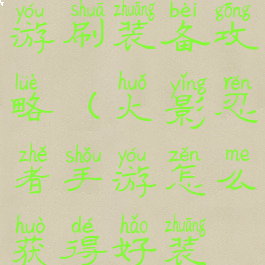 yóu shuā zhuāng bèi gōng
游刷装备攻
lüè huǒ yǐng rěn
略（火影忍
zhě shǒu yóu zěn me
者手游怎么
huò dé hǎo zhuāng
获得好装